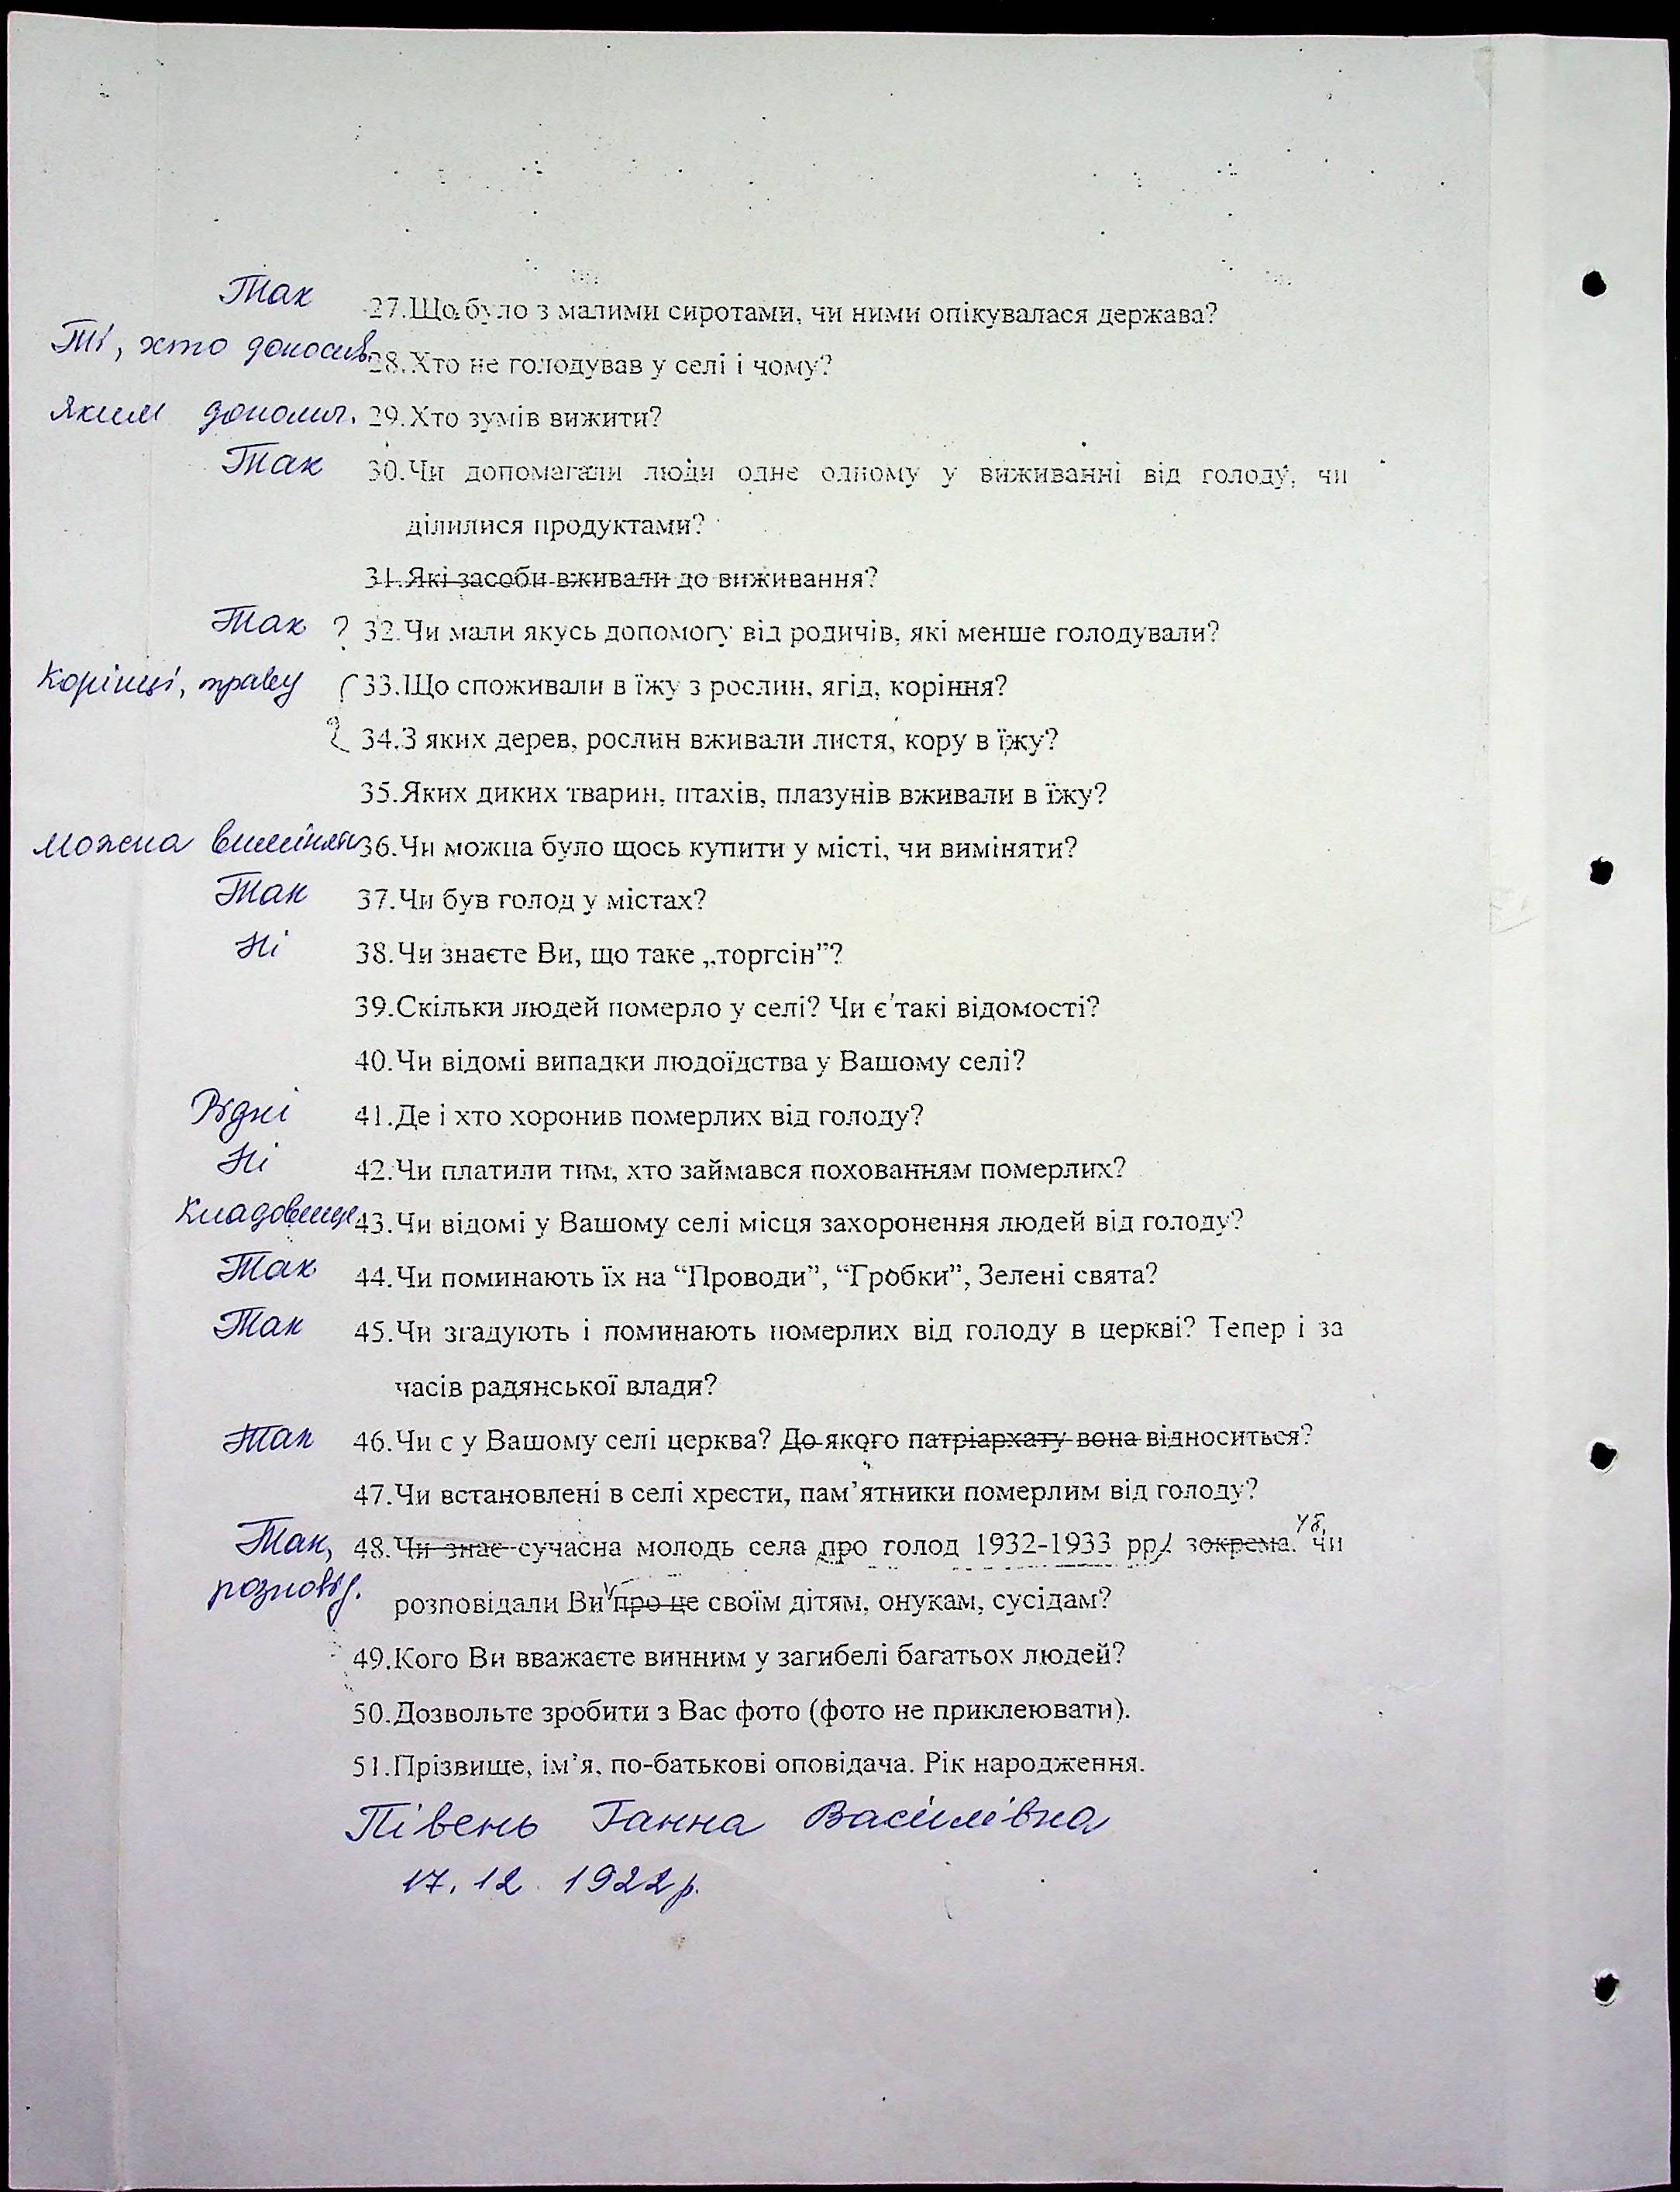 Так 27.Що було з малими сиротами, чи ними опікувалася держава?
Ті, хто доносив. 28.Хто не голодував у селі і чому?
Яким допомаг. 29.Хто зумів вижити?
Так 30.Чи допомагали люди одне одному у виживанні від голоду, чи
ділилися продуктами?
31.Які засоби вживали до виживання?
Так ? 32.Чи мали якусь допомогу від родичів, які менше голодували?
Корінці, траву 33.Що споживали в їжу з рослин, ягід, коріння?
34.З яких дерев, рослин вживали листя, кору в їжу?
35.Яких диких тварин, птахів, плазунів вживали в їжу?
Можна виміняти 36.Чи можна було щось купити у місті, чи виміняти?
Так 37.Чи був голод у містах?
Ні 38.Чи знаєте Ви, що таке „торгсін”?
39.Скільки людей померло у селі? Чи є такі відомості?
40.Чи відомі випадки людоїдства у Вашому селі?
Рідні 41.Де і хто хоронив померлих від голоду?
Ні 42.Чи платили тим, хто займався похованням померлих?
Кладовище 43.Чи відомі у Вашому селі місця захоронення людей від голоду?
Так 44.Чи поминають їх на “Проводи”, “Гробки”, Зелені свята?
Так 45.Чи згадують і поминають померлих від голоду в церкві? Тепер і за
часів радянської влади?
Так 46.Чи є у Вашому селі церква? До якого патріархату вона відноситься?
47.Чи встановлені в селі хрести, пам’ятники померлим від голоду?
Так, 48.Чи знає сучасна молодь села про голод 1932-1933 рр. зокрема, чи
розповід. розповідали Ви про це своїм дітям, онукам, сусідам?
49.Кого Ви вважаєте винним у загибелі багатьох людей?
50.Дозвольте зробити з Вас фото (фото не приклеювати).
51.Прізвище, ім’я, по-батькові оповідача. Рік народження.
Півень Ганна Василівна
17.12.1922р.